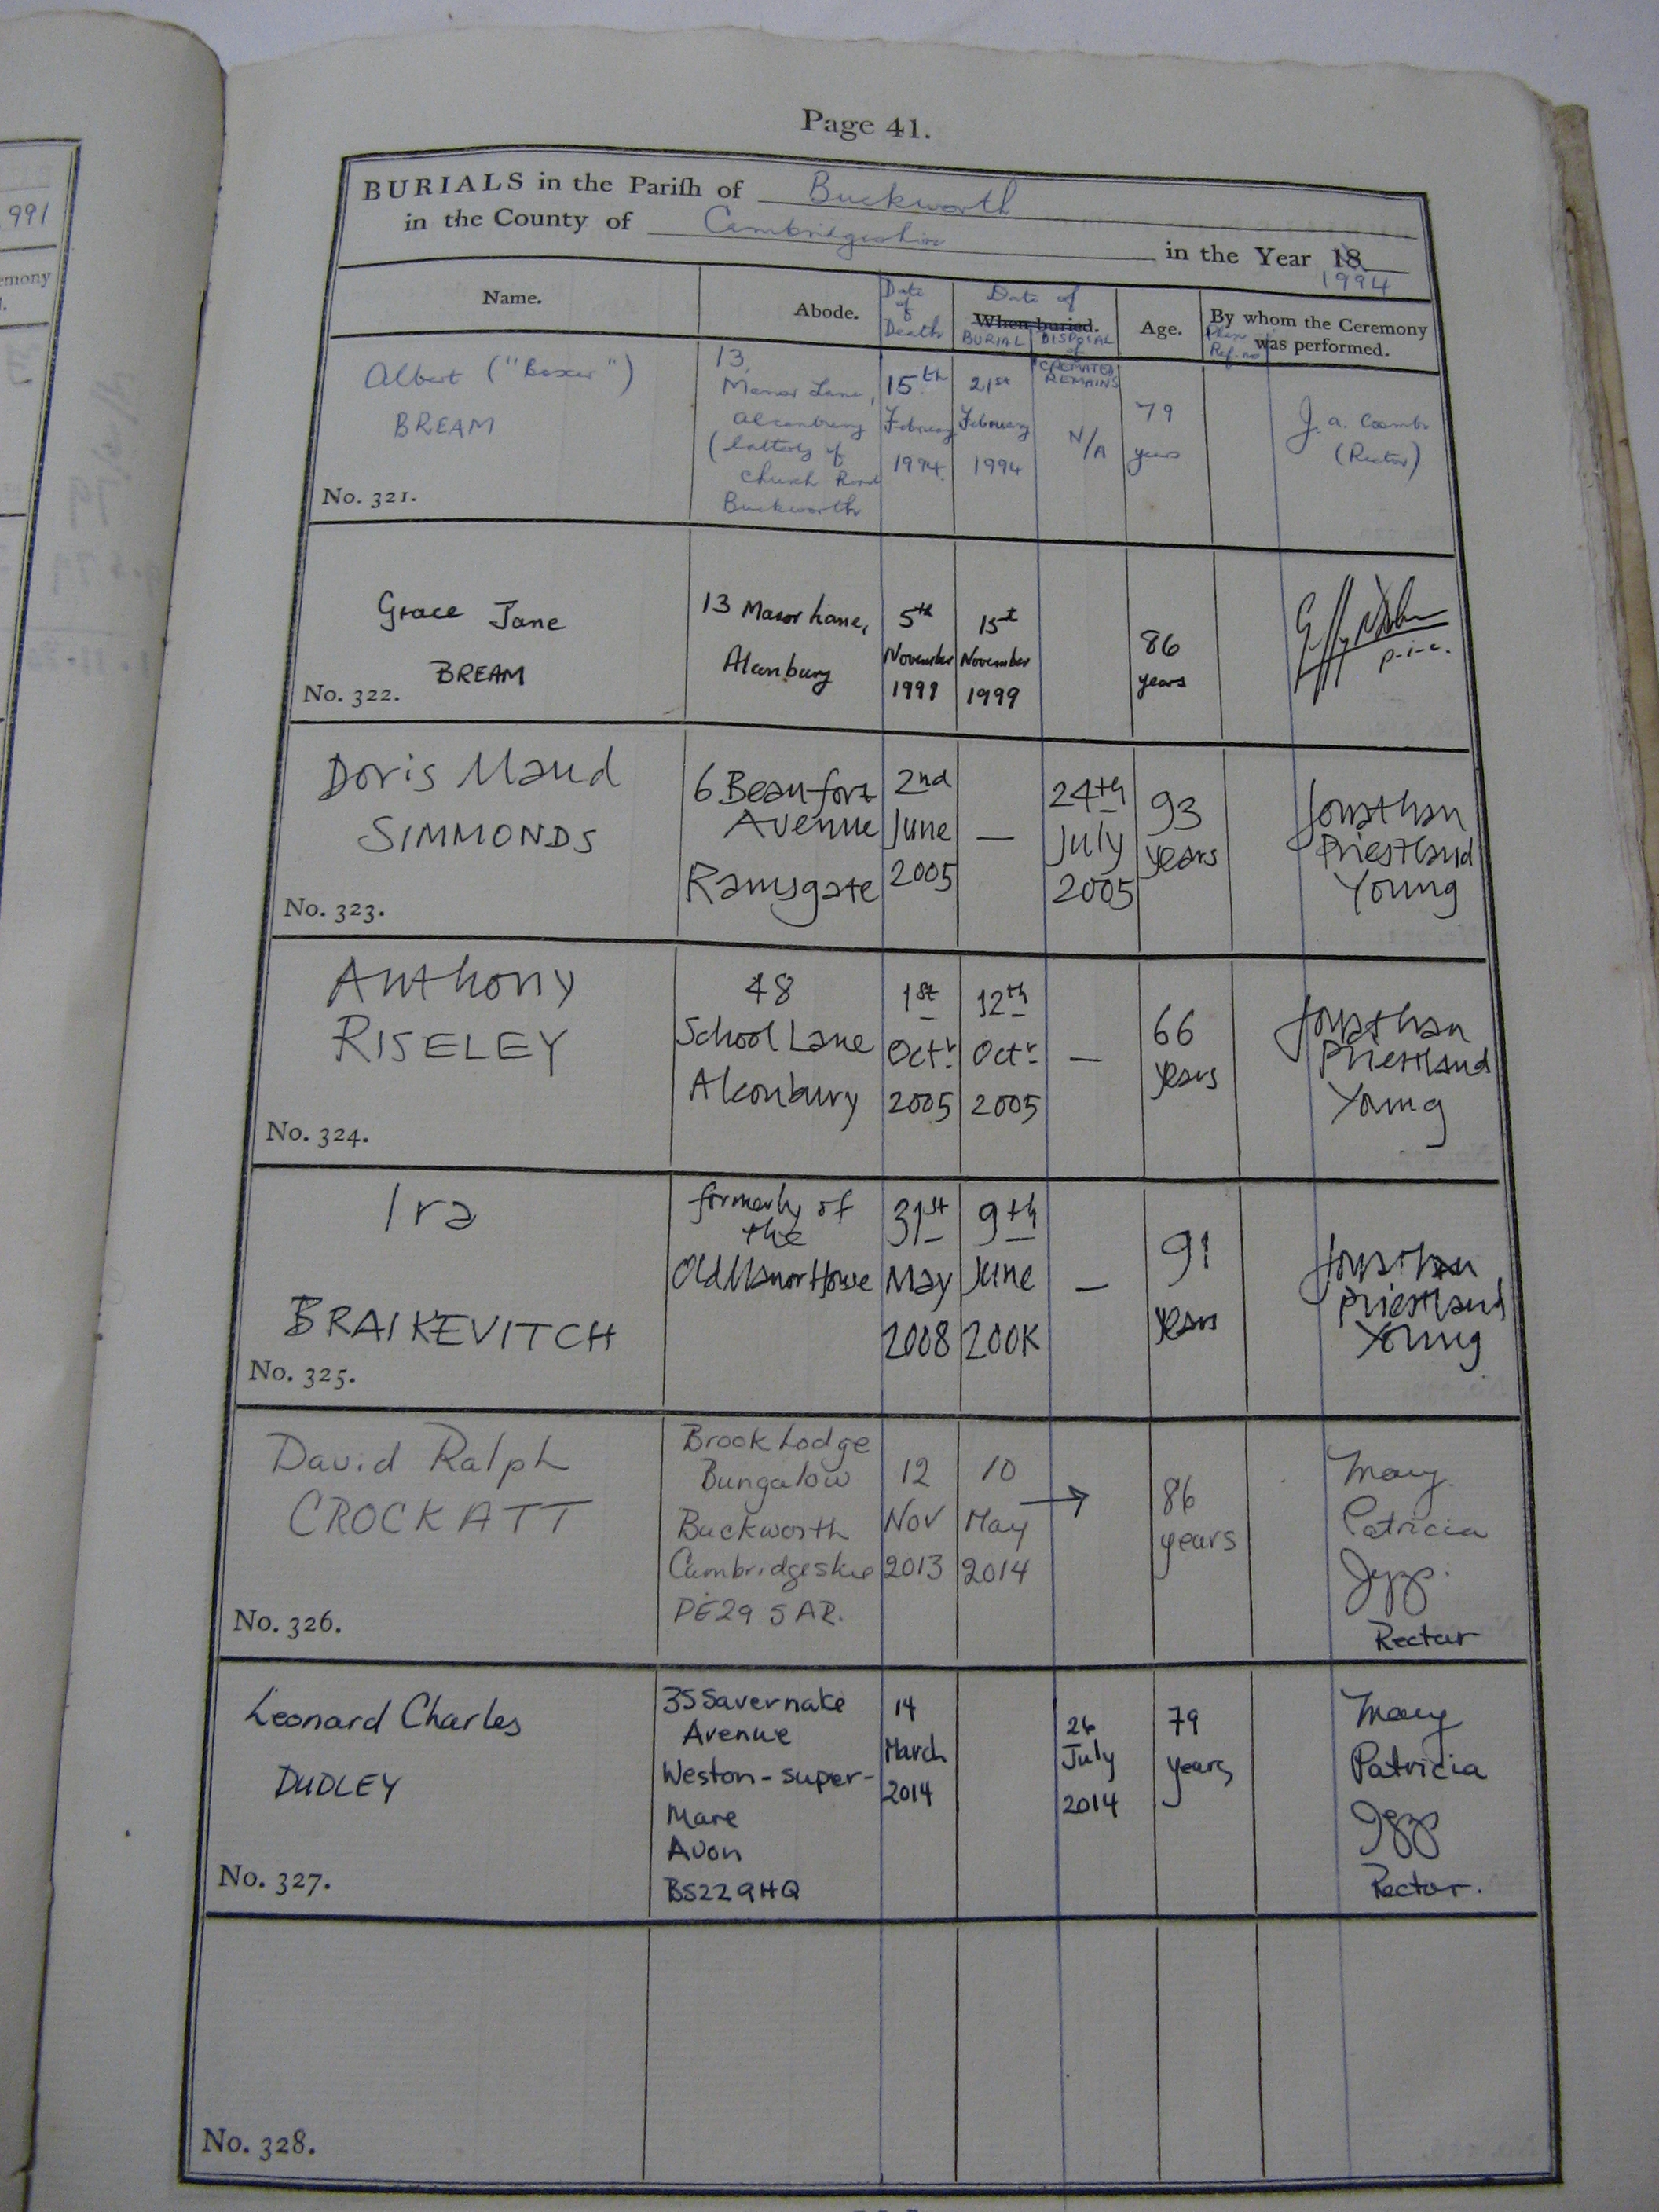 991
emony
Page 41.
BURIALS in the Pariſh of Buckworth
in the County of Cambridgeshire in the Year 18
1994
Name.
Abode.
Date of Death
Date of
When buried.
BURIAL
DISPOSAL of CREMATED REMAINS
Age.
Plan Ref. no
By whom the Ceremony was performed.
Albert ("Boxer")
BREAM
No. 321.
13,
Manor Lane,
Alconbury
(latterly of
Church Road
Buckworth
15th
February
1994.
21st
February
1994
N/A
79
years
J. a. Coombs
(Rector)
Grace Jane
BREAM
No. 322.
13 Manor Lane,
Alconbury
5th
November
1999
15st
November
1999
86
years
p-i-c.
Doris Maud
SIMMONDS
No. 323.
6 Beaufort
Avenue
Ramsgate
2nd
June
2005
—
24th
July
2005
93
years
Jonathan
Priestland
Young
Anthony
RISELEY
No. 324.
48
School Lane
Alconbury
1st
Octr
2005
12th
Octr
2005
—
66
years
Jonathan
Priestland
Young
Ira
BRAIKEVITCH
No. 325.
formerly of
the
Old Manor House
31st
May
2008
9th
June
—
91
years
Jonathan
Priestland
Young
David Ralph
CROCKATT
No. 326.
Brook Lodge
Bungalow
Buckworth
Cambridgeshire
PE29 5AR.
12
Nov
2013
10
May
2014
→
86
years
Mary
Patricia
Jepp.
Rector
Leonard Charles
DUDLEY
No. 327.
35 Savernake
Avenue
Weston-super-
Mare
Avon
BS22 9HQ
14
March
2014
26
July
2014
79
years
Mary
Patricia
Jepp
Rector.
No. 328.